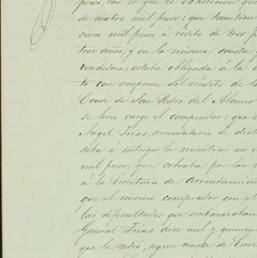 pesos, con lo que se
de cuatro mil pesos: que tambien
cinco mil pesos á rédito de tres p
tres años, y en la misma consta
vendedora: estaba obligada á la
to con escepcion del crédito de la
Conso de San Pedro del Alamo
se hizo cargo el comprador: que
Angel Frias, arrendatario de
daba á entregarla mientras no
mil pesos, que cobraba por las
á la Escritura de arrendamien
que el mismo comprador con el
las dificultades que embarazaban
General Frias diez mil y
que le cedió, segun consta de